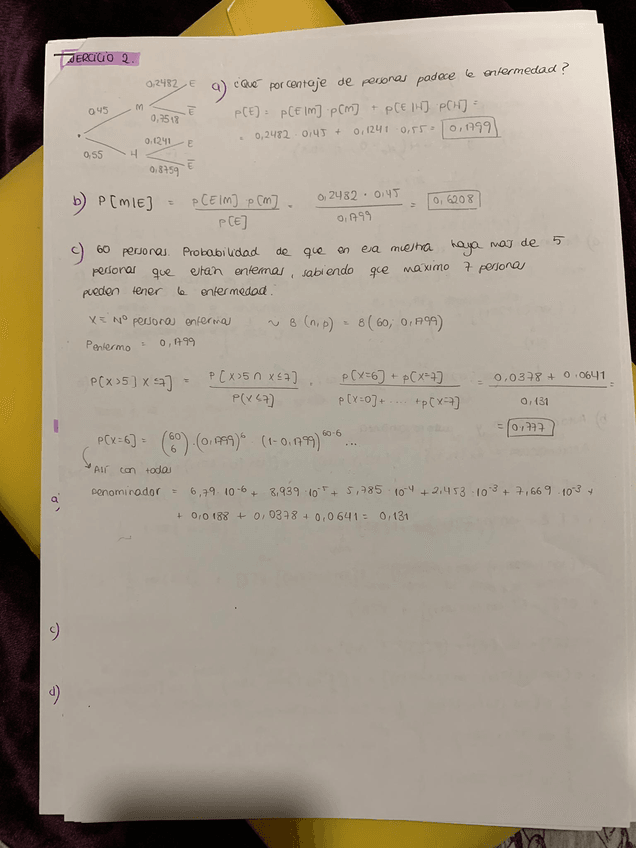 EJERCICIO 2.
0,2482 E
0,45 M
0,7518 E̅
0,1241 E
0,55 H
0,8759 E̅
a) ¿Qué porcentaje de personas padece la enfermedad?
P[E] = P[E|M] · P[M] + P[E|H] · P[H] =
= 0,2482 · 0,45 + 0,1241 · 0,55 = 0,1799
b) P[M|E] = P[E|M] · P[M] / P[E] = 0,2482 · 0,45 / 0,1799 = 0,6208
c) 60 personas. Probabilidad de que en esa muestra haya mas de 5
personas que están enfermas, sabiendo que máximo 7 personas
pueden tener la enfermedad.
X = Nº personas enfermas ~ B(n,p) = B(60, 0,1799)
Penfermo = 0,1799
P[X>5 | X≤7] = P[X>5 ∩ X≤7] / P(X≤7) = P[X=6] + P[X=7] / P[X=0] + .... + P[X=7] = 0,0378 + 0,0641 / 0,131 =
= 0,777
P[X=6] = (60 6) · (0,1799)^6 · (1-0,1799)^60-6 ...
Así con todas
Denominador = 6,79·10^-6 + 8,939·10^-5 + 5,785·10^-4 + 2,453·10^-3 + 7,669·10^-3 +
+ 0,0188 + 0,0378 + 0,0641 = 0,131
a)
c)
d)